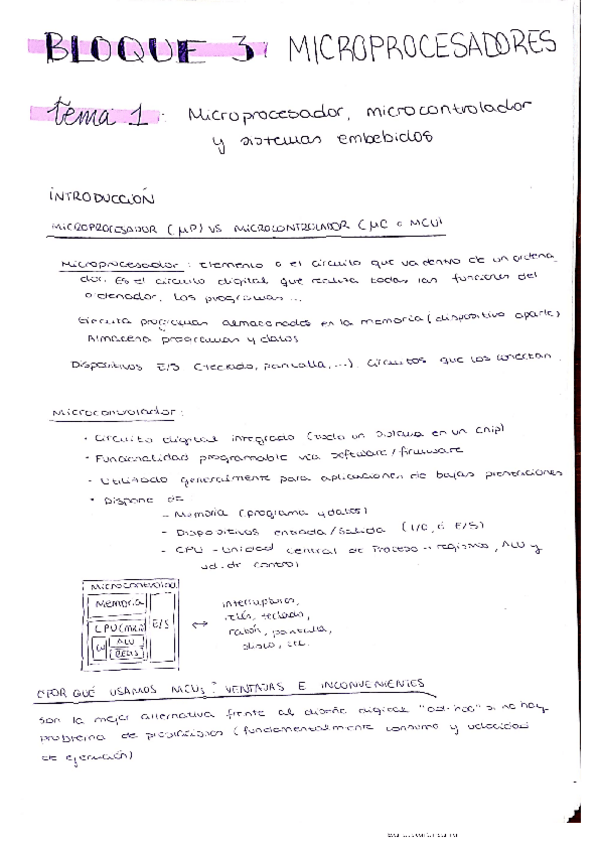 BLOQUE 3: MICROPROCESADORES
tema 1: Microprocesador, microcontrolador
y sistemas embebidos
INTRODUCCIÓN
MICROPROCESADOR (μP) VS MICROCONTROLADOR (μC o MCU)
Microprocesador: Elemento o el circuito que va dentro de un ordena
dor. Es el circuito digital que realiza todas las funciones del
ordenador, los programas...
Ejecuta programas almacenados en la memoria (dispositivo aparte)
Almacena programas y datos
Dispositivos E/S (teclado, pantalla, ...). Circuitos que los conectan.
Microcontrolador:
· Circuito digital integrado (todo un sistema en un chip)
· Funcionalidad programable via software/firmware
· Utilizado generalmente para aplicaciones de bajas prestaciones
· Dispone de
- Memoria (programa y datos)
- Dispositivos entrada/salida (I/O, ó E/S)
- CPU - Unidad central de Proceso - registros, ALU y
ud. de control
Microcontrolador
Memoria
E/S
CPU
ALU
↔ interruptores,
teclado,
ratón, pantalla,
disco, etc.
¿POR QUÉ USAMOS MCUs? VENTAJAS E INCONVENIENTES
Son la mejor alternativa frente al diseño digital "ad-hoc" si no hay
problema de prestaciones (fundamentalmente consumo y velocidad
de ejecución)